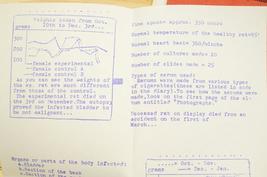 Weights taken from Oct.
20th to Dec. 3rd...
grams
350
300
250
---female experimental
---female control A
---female control B
As you can see the weights of
the ex. rat are more different
from those of the control.
The experimental rat died on
the 3rd of December. The autopsy
proved the infected bladder to
be not malignant...
Organs or parts of the body infected:
a.Bladder
Time spent: approx. 350 hours
Normal temperature of the healthy rat=
Normal heart beat: 360/minute
Number of cultures made= 10
Number of slides made = 25
Types of serum used:
Serums were made from various types
of cigarettes(these are listed in side
in the diary).To see how the serums were
made,look on the first page of the al-
bum entitled" Photographs."
Deceased rat on display died from an
accident on the first of
March...
... Oct. - Nov.
grams --- Dec. - Jan.